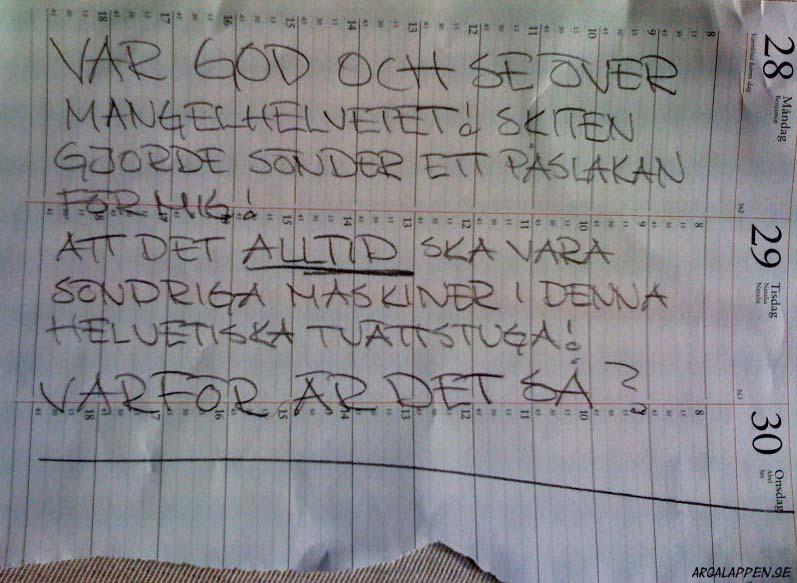 VAR GOD OCH SE ÖVER
MANGELHELVETET! SKITEN
GJORDE SÖNDER ETT PÅSLAKAN
FÖR MIG!
ATT DET ALLTID SKA VARA
SÖNDRIGA MASKINER I DENNA
HELVETISKA TVÄTTSTUGA!
VARFÖR ÄR DET SÅ?
28 Måndag
Benjamin
Värnlösa barns dag
362
8 9 10 11 12 13 14 15 16 17 18
29 Tisdag
Natalia
Natalie
363
8 9 10 11 12 13 14 15 16 17 18
30 Onsdag
Abel
Set
8 9 10 11 12 13 14 15 16 17 18
ARGALAPPEN.SE